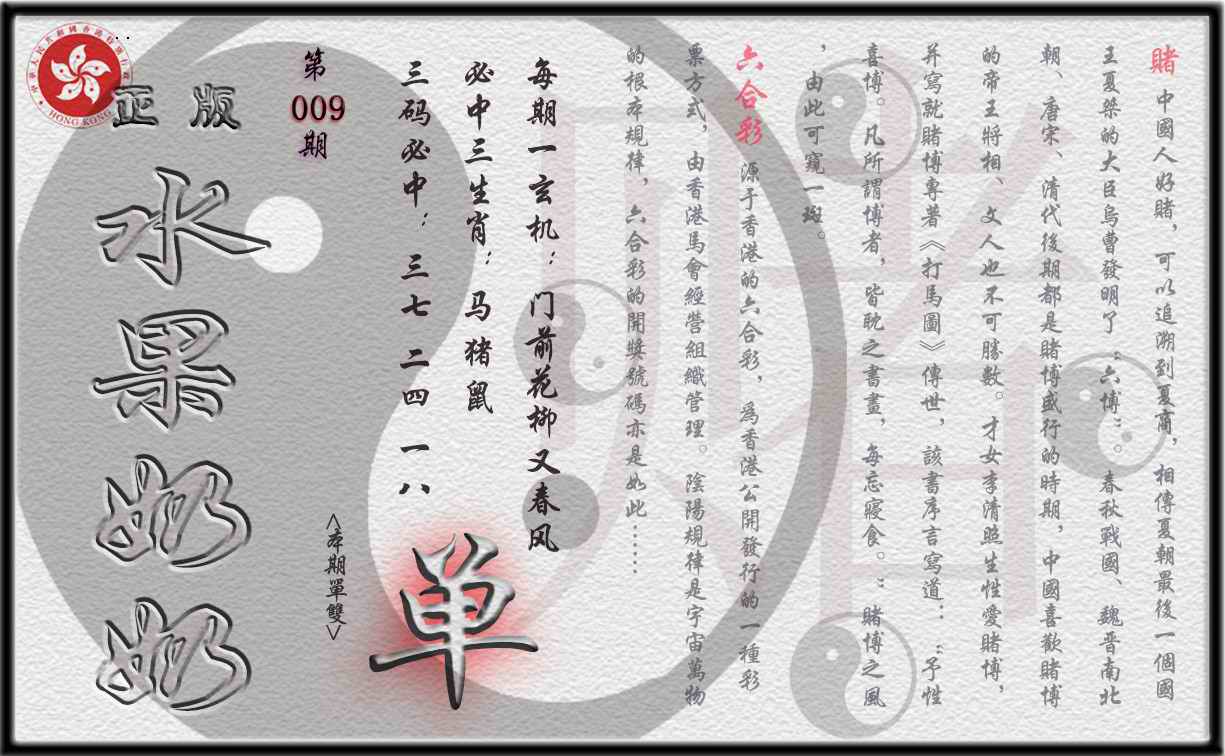 賭 中國人好賭，可以追溯到夏商，相傳夏朝最後一個國
王夏桀的大臣烏曹發明了“六博”。春秋戰國、魏晋南北
朝、唐宋、清代後期都是賭博盛行的時期，中國喜歡賭博
的帝王將相、文人也不可勝數。才女李清照生性愛賭博，
并寫就賭博專著《打馬圖》傳世，該書序言寫道：“予性
喜博。凡所謂博者，皆耽之書畫，每忘寢食。”賭博之風
，由此可窺一斑。
六合彩 源于香港的六合彩，爲香港公開發行的一種彩
票方式，由香港馬會經營組織管理。陰陽規律是宇宙萬物
的根本規律，六合彩的開獎號碼亦是如此……
每期一玄机：门前花柳又春风
必中三生肖：马猪鼠
三码必中：三七 二四 一八
单
<本期單雙>
第
009
期
正版
水果奶奶
中華人民共和國香港特別行政區
HONG KONG